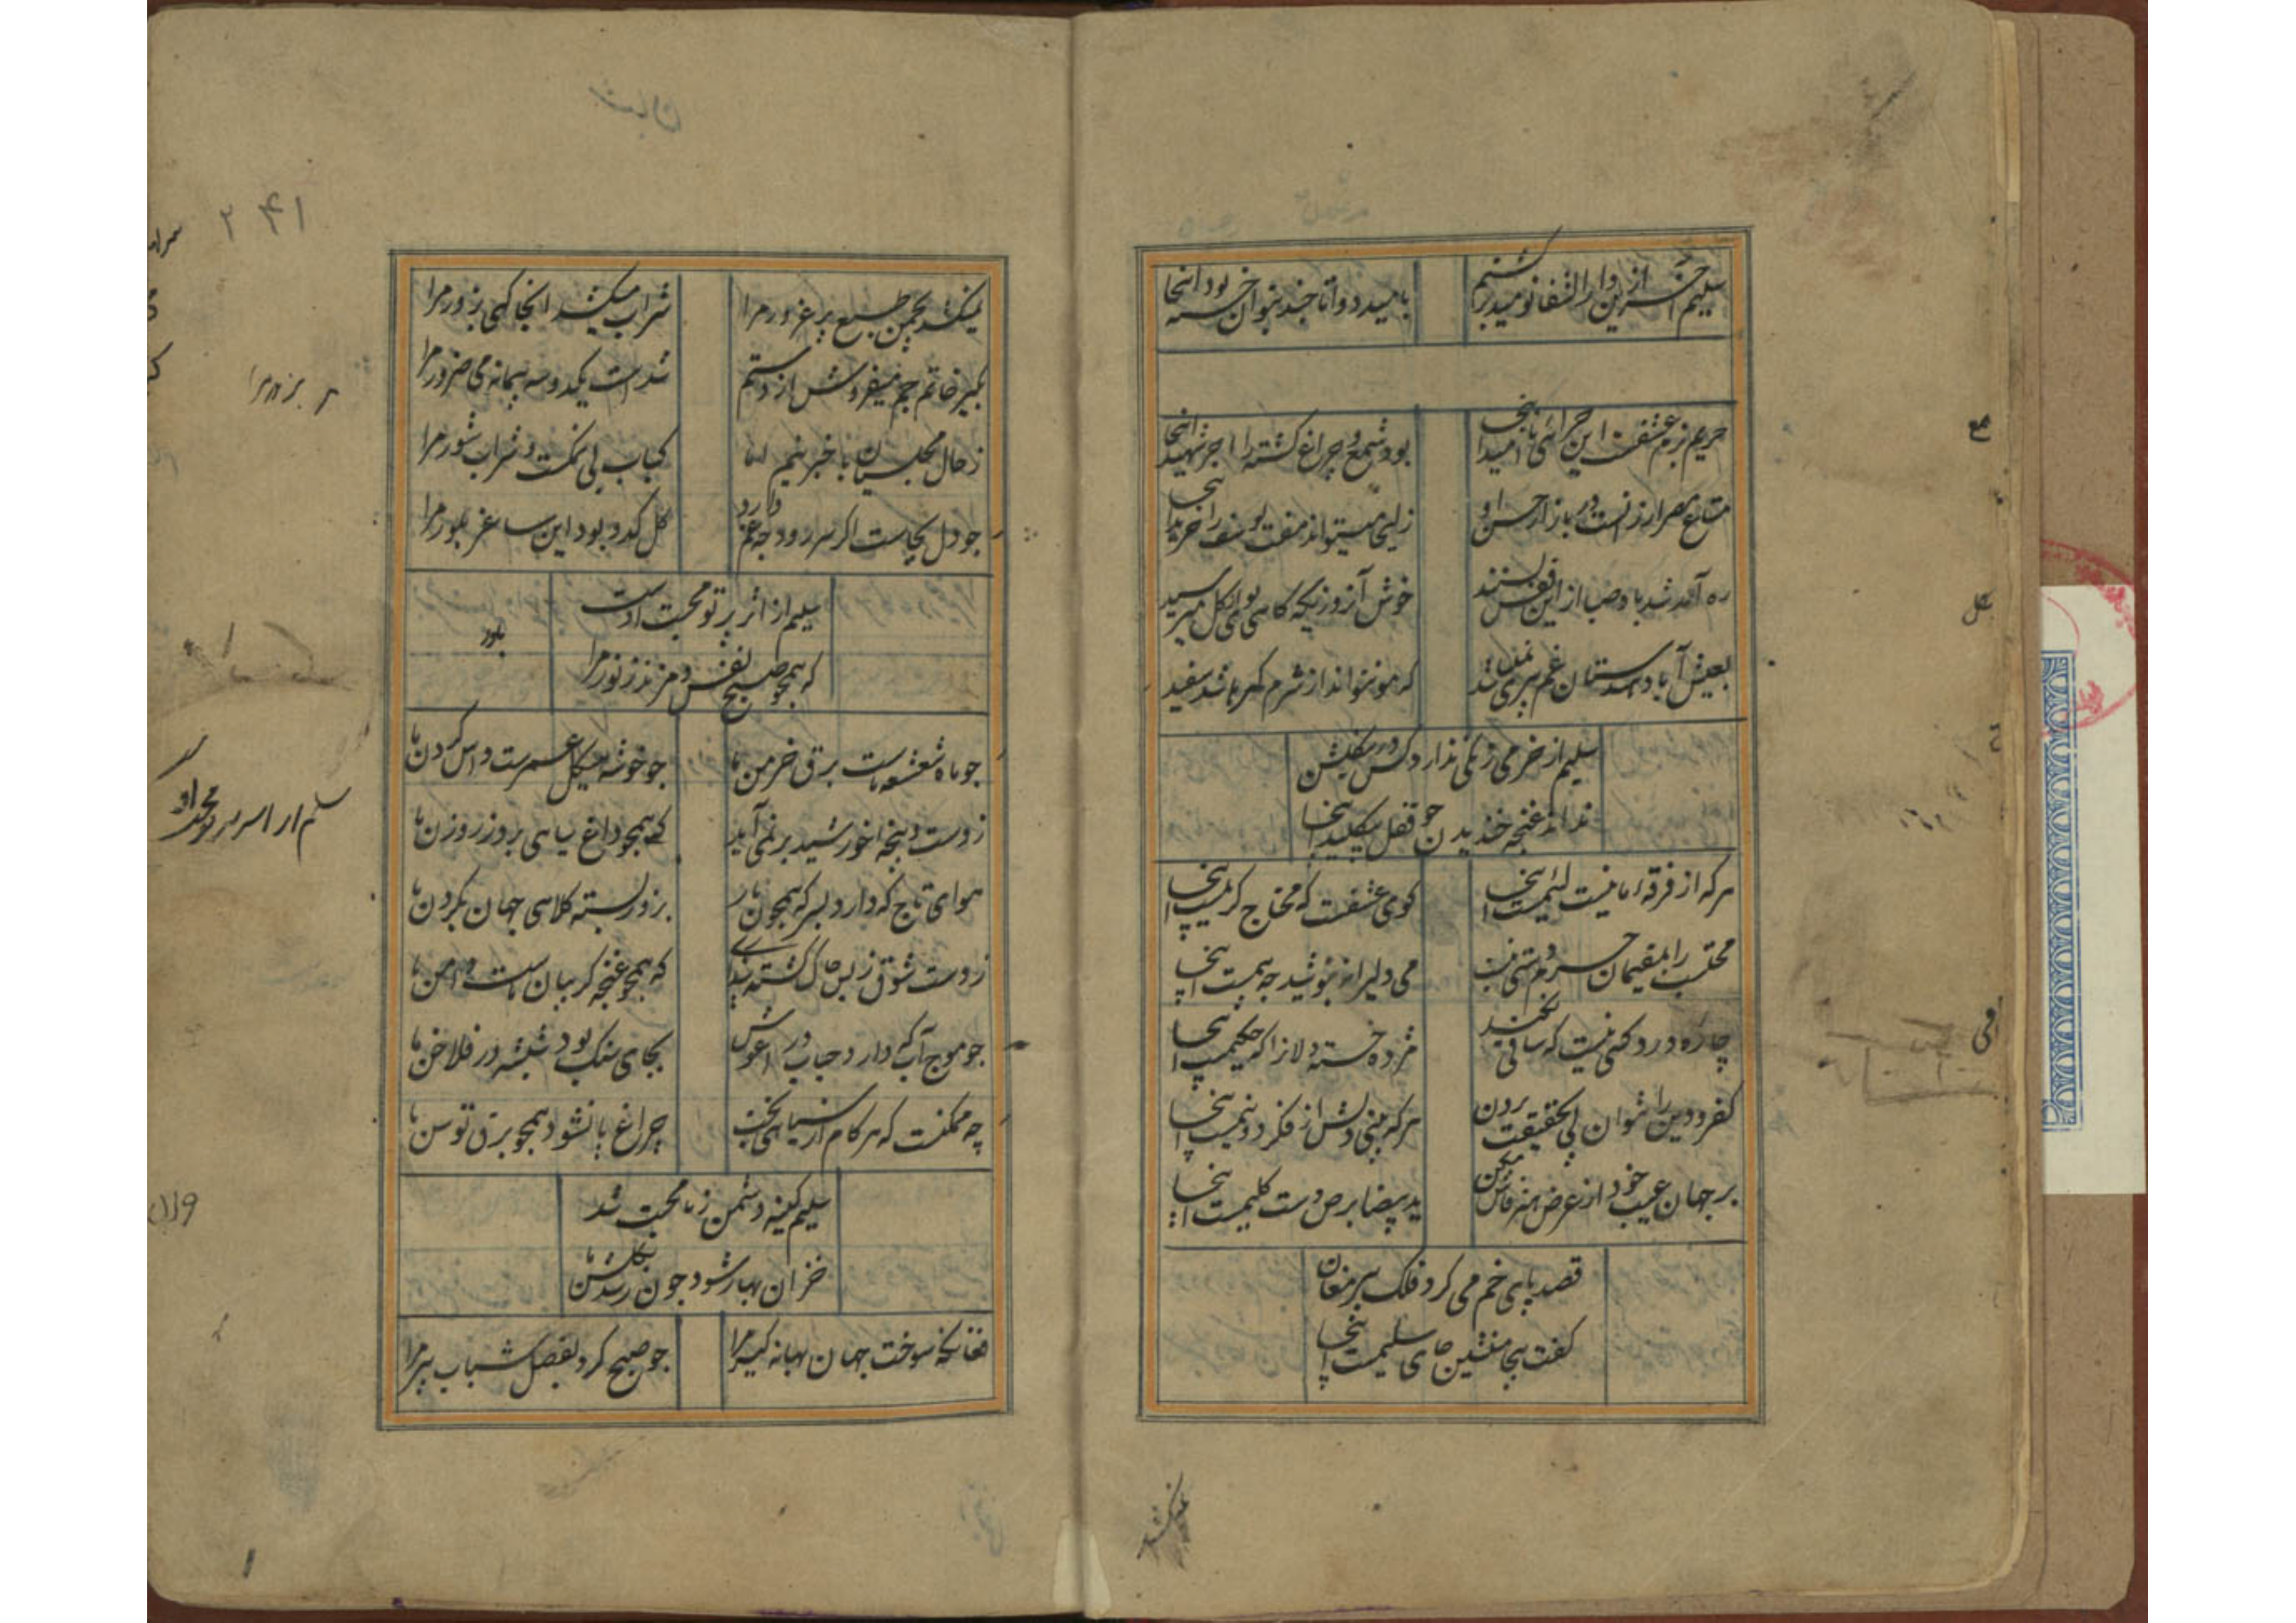 سلیم آخر ازین دار الشفا نومید برگشتم
بامید دوا تا چند بتوان خسته بود اینجا
حریم بزم عشقست این چرائی ناامید اینجا
بود شمع و چراغ کشته را اجر شهید اینجا
متاع مصر ارزانست در بازار حسن او
زلیخا میتواند مفت یوسف را خرید اینجا
ره آمد شد باد صبا از این قفس بستند
خوش آنروزیکه کاهی بوی کل میرسید
بعیش آباد هندستان غم پیری نمیباشد
که مو نتواند از شرم کمر باشد سفید
سلیم از خرمی رنگی ندارد کس درین کلشن
نداند غنچه خندیدن چو قفل بیکلید اینجا
هرکه از فرقهٔ ما نیست لئیمست اینجا
کوی عشقست که محتاج کریمست اینجا
محتسب را بمقیمان حرم دستی نیست
می دلیرانه بنوشید چه بیمست اینجا
چاره درد کسی نیست که ساقی نکند
مژده خسته دلانرا که حکیمست اینجا
کفر و دین را نتوان پی بحقیقت بردن
هرکه بینی دلش از فکر دو نیمست اینجا
بر جهان عیب خود از عرض هنر فاش مکن
ید بیضا برص دست کلیمست اینجا
قصد پای خم می کرد فلک پیر مغان
کفت بیجا منشین جای سلیمست اینجا
۲۴۱
نمیکشد بچمن طبع پر غرور مرا
شراب میکشد آنجا کهی بزور مرا
بکیر خاتم جم میفروش از دستم
شد است یکدو سه پیمانه می ضرور مرا
ز حال مجلسیان با خبر نیم اما
کباب بی نمکست و شراب شور مرا
چو دل بجاست اکر سر رود چه غم دارد
کل کدو بود این ساغر بلور مرا
سلیم از اثر پرتو محبت اوست
که همچو صبح نفس میزند ز نور مرا
چو ماه شعشعه ماست برق خرمن ما
چو خوشه هیکل عمرست داس کردن ما
ز دست و پنجه خورشید بر نمی آید
که همچو داغ سیاهی برد ز روزن ما
هوای تاج که دارد بسر که همچون مار
بزور بسته کلاهی جهان بکردن ما
ز دست شوق ز بس چاک کشته پنداری
که همچو غنچه کریبان ماست دامن ما
چو موج آب که دارد حباب در آغوش
بجای سنک بود شیشه در فلاخن ما
چه ممکنست که هر کام از سیاهی بخت
چراغ پا نشود همچو برق توسن ما
سلیم کینه دشمن ز ما محبت شد
خزان بهار شود چون رسد بکلشن ما
فغانکه سوخت جهان بهانه کیر مرا
چو صبح کرد بفصل شباب پیر مرا